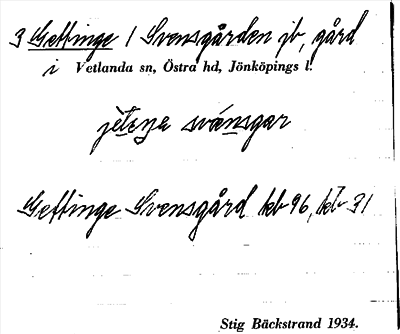 3 Gettinge 1 Svensgården jb, gård
i Vetlanda sn, Östra hd, Jönköpings l.
Gettinge Svensgård kb 96, kb 31
Stig Bäckstrand 1934.